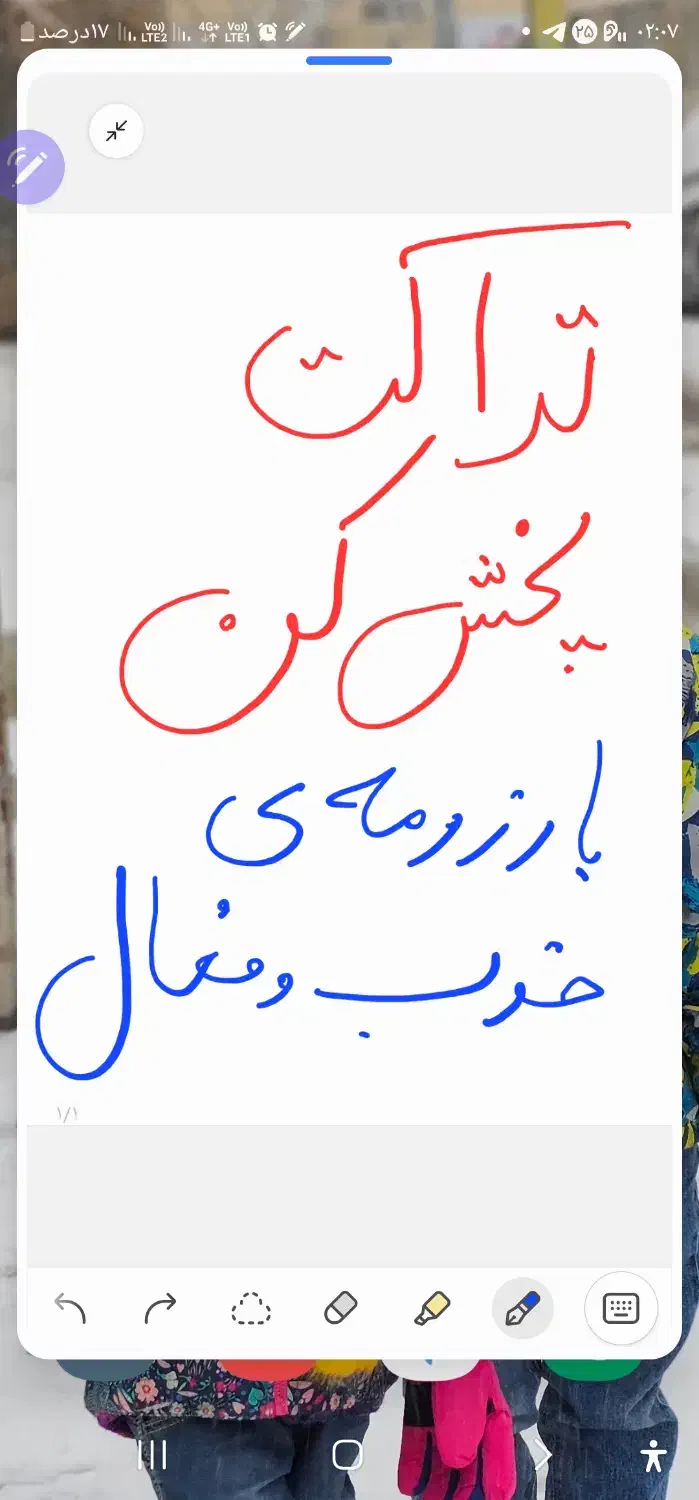 ۱۷درصد Vo)) LTE2 4G+ Vo)) LTE1 ۲۵ ۰۲:۰۷
تراکت
پخش کن
با رزومه ی
خوب و فعال
۱/۱